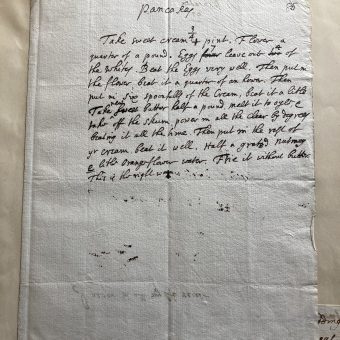 Pancakes
Take sweet cream 3/4 pint. Flower a
quarter of a pound. Eggs four leave out two of
the whites. Beat the Eggs very well. Then put in
the flower beat it a quarter of an hower. Then
put in six spoonfulls of the Cream, beat it a litle
Take sweet butter half a pound melt it to oyle, &
take off the skum power in all the clear by degrees
beating it all the time. Then put in the rest of
yr cream. beat it well. Half a grated nutmeg
& litle Orange-flower water. Frie it without butter.
This is the right